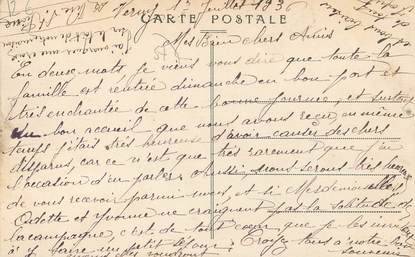 13 Juillet 1936
CARTE POSTALE
Mes Bien chers Amis
En deux mots je viens vous dire que toute la
famille est rentrée dimanche en bon port et
très enchantée de cette bonne journée, et surtout
du bon accueil que nous avons reçu, en même
temps j'étais très heureuse d'avoir causer des chers
disparus, car ce n'est que très rarement que j'ai
l'occasion d'en parler. Aussi, nous serons très heureux
de vous recevoir parmi nous, et si Mesdemoiselles
Odette et Yvonne ne craignent pas la solitude de
la campagne, c'est de tout cœur que je les invite
à y faire un petit séjour. Croyez tous à notre bon
quand elles voudront souvenir